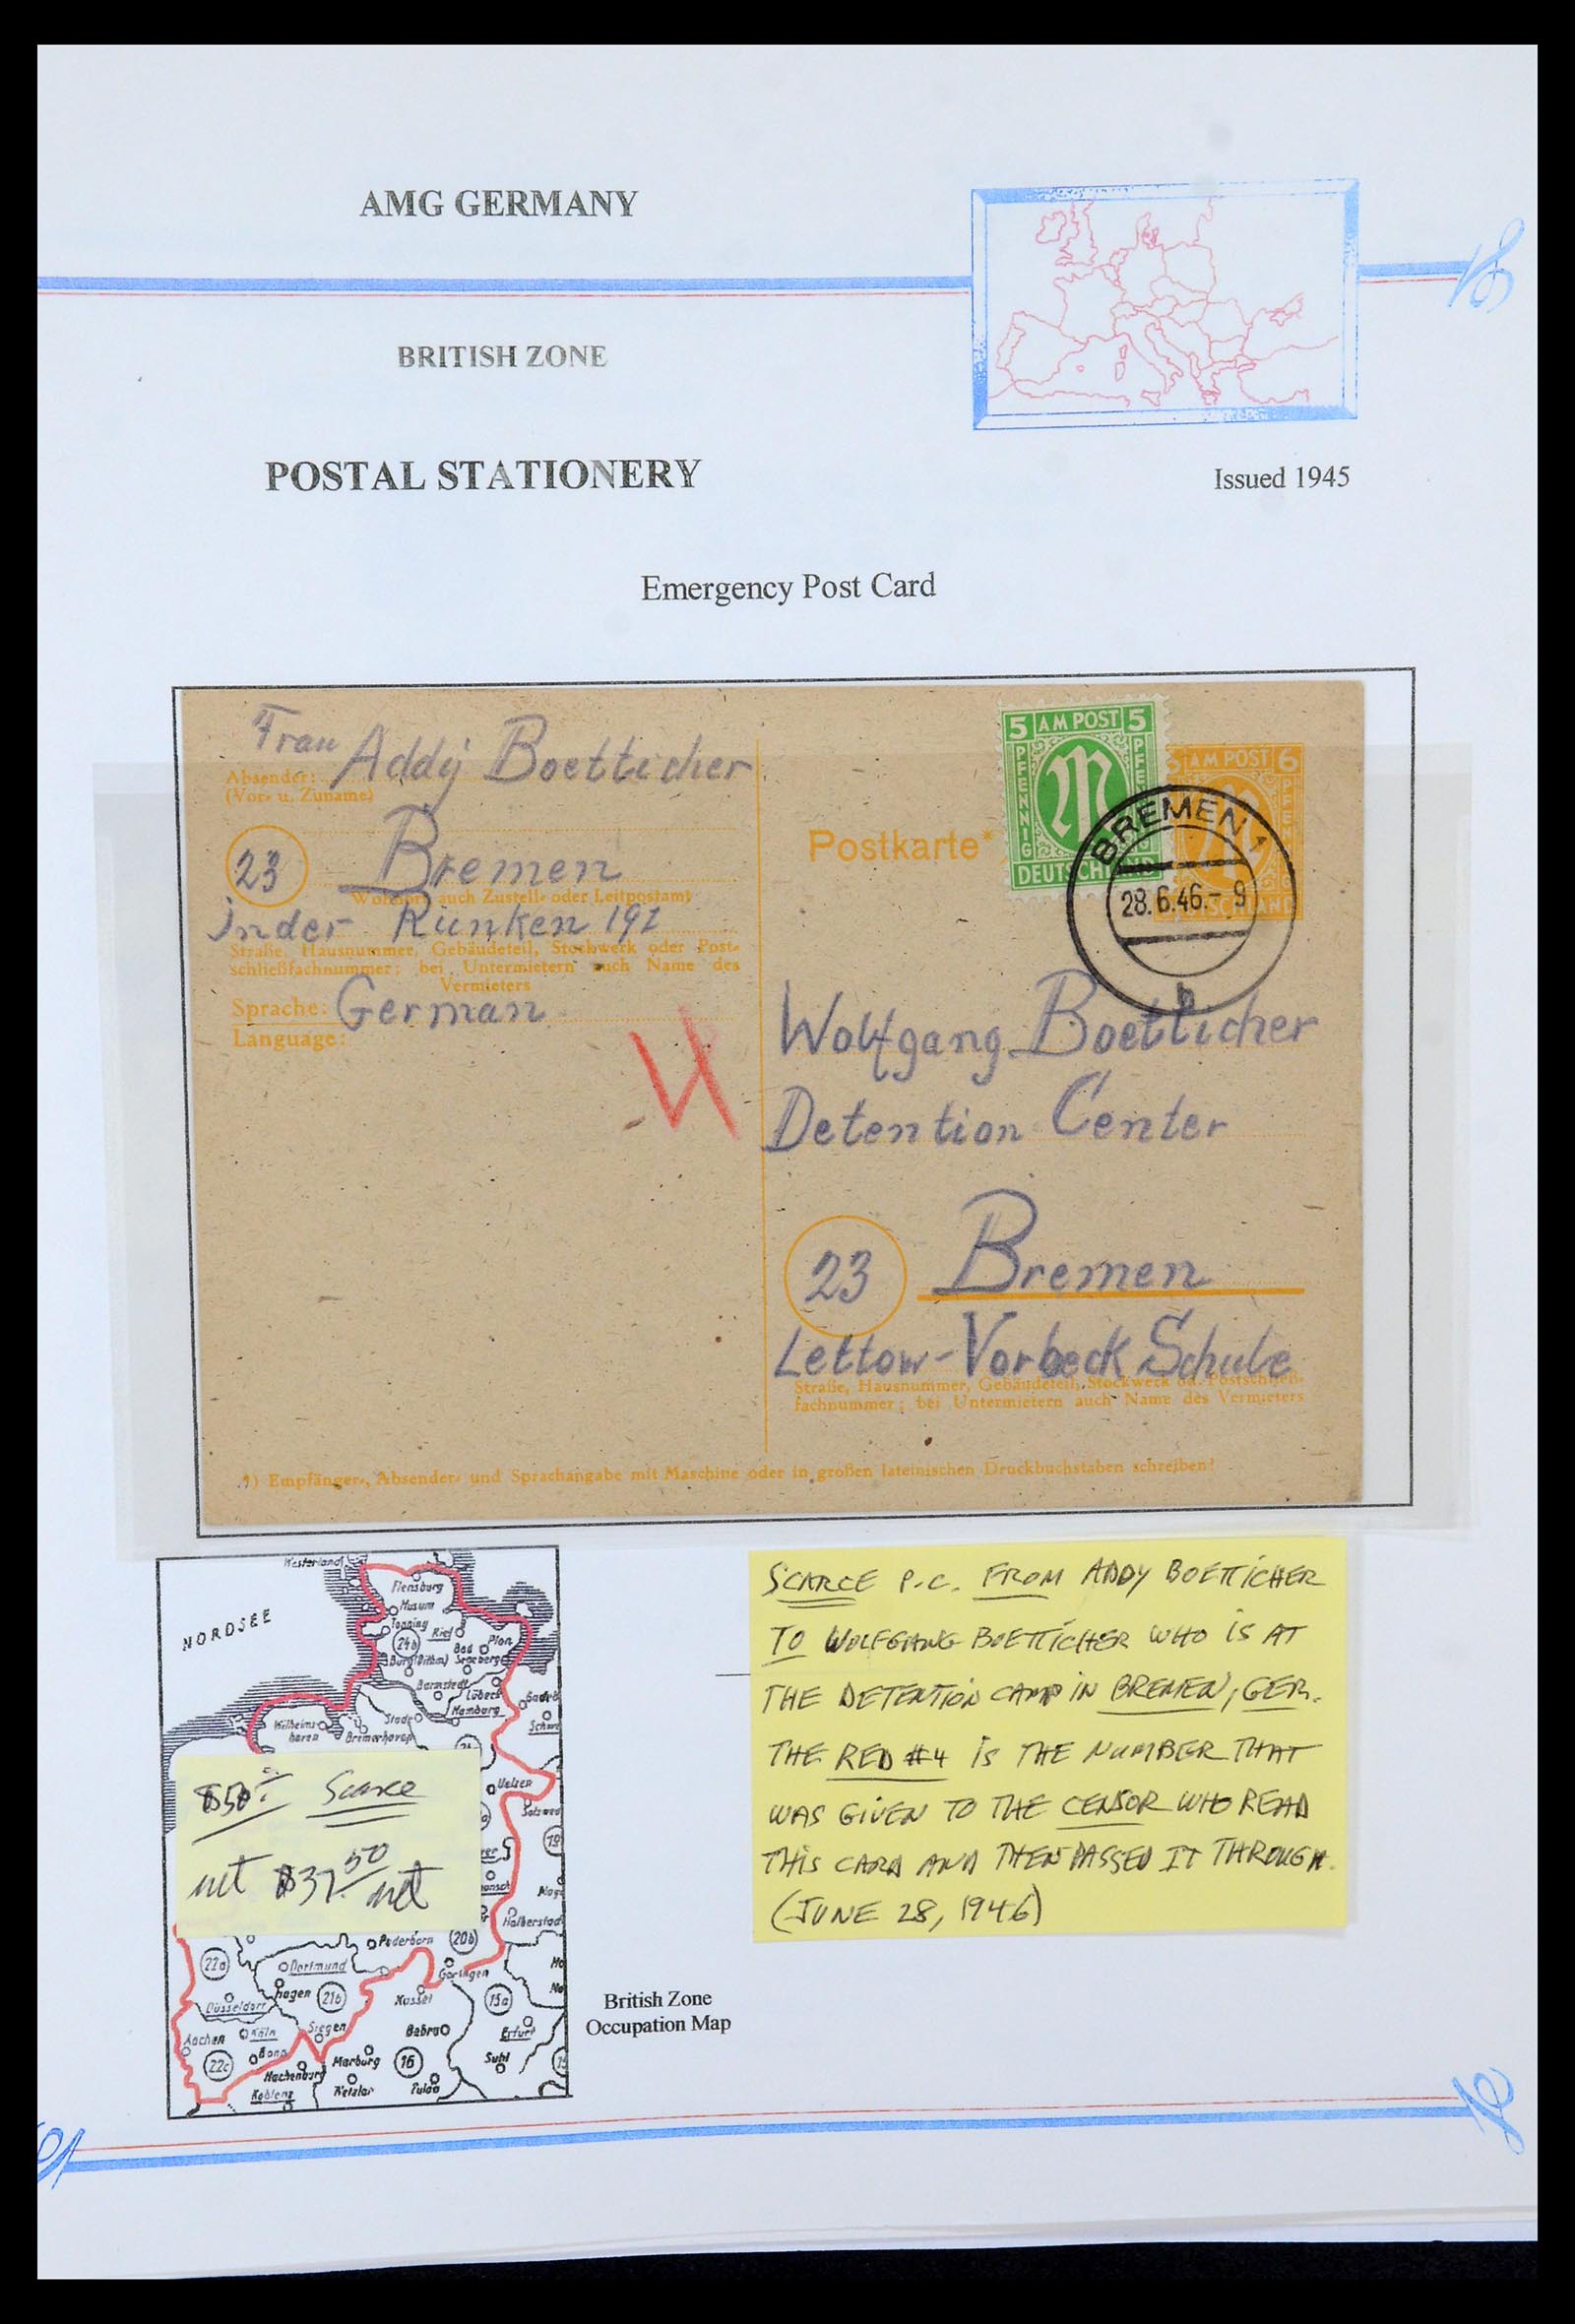 AMG GERMANY
BRITISH ZONE
POSTAL STATIONERY
Issued 1945
Emergency Post Card
Frau Addy Boetticher
Absender:
(Vor- u. Zuname)
23 Bremen
Wohnort, auch Zustell- oder Leitpostamt
In der Runken 191
Straße, Hausnummer, Gebäudeteil, Stockwerk oder Post-
schließfachnummer; bei Untermietern auch Name des
Vermieters
Sprache: German
Language:
4
Postkarte*
5 AM POST 5
PFENNIG
PFENNIG
DEUTSCHLAND
AM POST 6
PFENNIG
DEUTSCHLAND
BREMEN 1
28.6.46.- 9
b
Wolfgang Boetticher
Detention Center
23 Bremen
Lettow-Vorbeck Schule
Straße, Hausnummer, Gebäudeteil, Stockwerk od. Postschließ-
fachnummer; bei Untermietern auch Name des Vermieters
*) Empfänger-, Absender- und Sprachangabe mit Maschine oder in großen lateinischen Druckbuchstaben schreiben!
SCARCE P.C. FROM ADDY BOETTICHER
TO WOLFGANG BOETTICHER WHO IS AT
THE DETENTION CAMP IN BREMEN, GER.
THE RED #4 IS THE NUMBER THAT
WAS GIVEN TO THE CENSOR WHO READ
THIS CARD AND THEN PASSED IT THROUGH.
(JUNE 28, 1946)
Westerland
Flensburg
NORDSEE
Husum
Tönning
Kiel
24b
Bad
Plön
Burg (Dithm)
Segeberg
Barmstedt
Lübeck
Gadeb
Stade
Hamburg
Schwe
Wilhelms-
haven
Bremerhaven
Uelzen
Salzwed
19
$50 Scarce
net $37.50 net
Halberstad
Paderborn
20b
22a
Dortmund
Göttingen
Hagen
21b
Kassel
15a
Düsseldorf
Siegen
Bebra
Erfurt
Aachen
Köln
22c
Bonn
Marburg
16
Suhl
Hachenburg
Koblenz
Wetzlar
Fulda
British Zone
Occupation Map